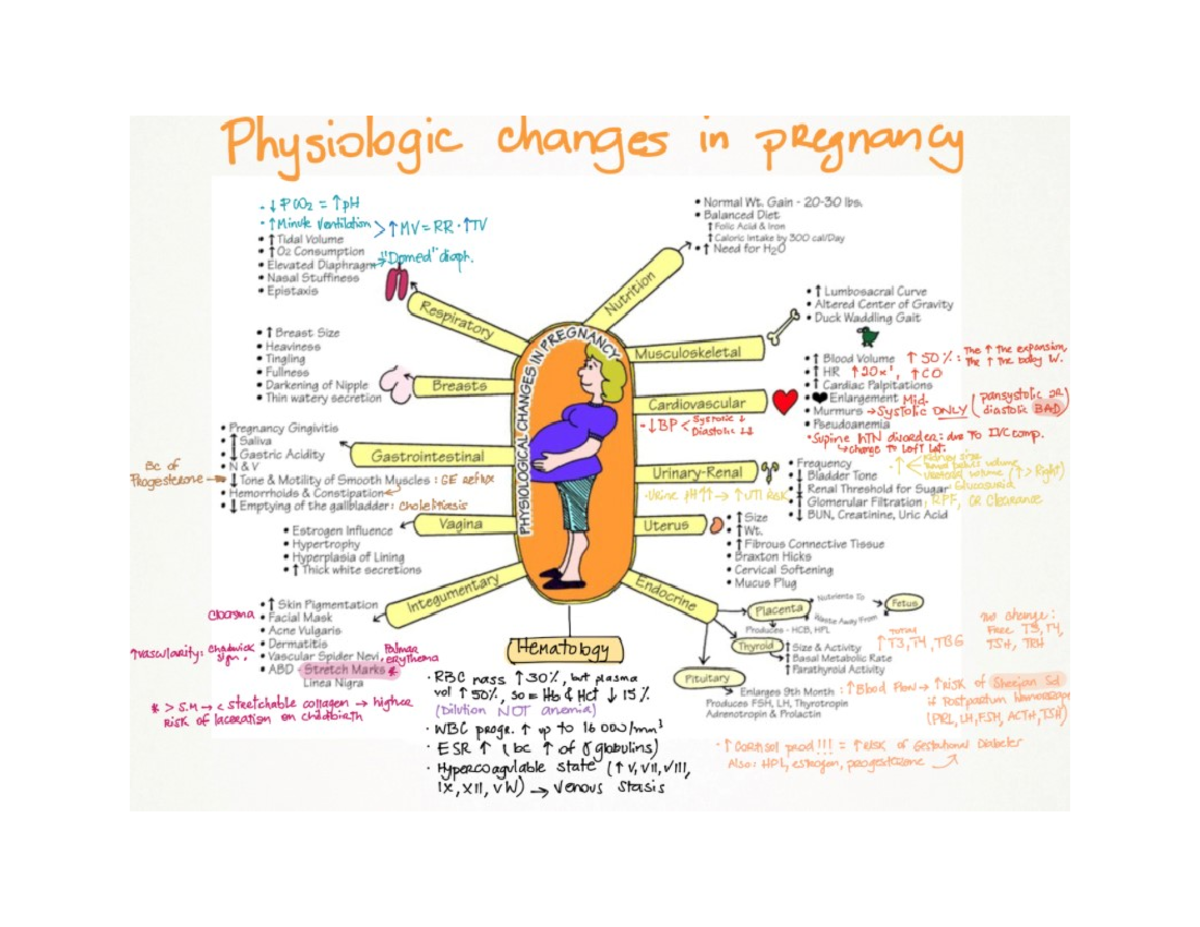 Physiologic changes in pregnancy
- ↓ PCO2 = ↑pH
• ↑Minute Ventilation > ↑MV = RR · ↑TV
• ↑ Tidal Volume
• ↑ O2 Consumption
• Elevated Diaphragm → "Domed" diaph.
• Nasal Stuffiness
• Epistaxis
Respiratory
• Normal Wt. Gain - 20-30 lbs.
• Balanced Diet
↑ Folic Acid & Iron
↑ Caloric Intake by 300 cal/Day
• ↑ Need for H2O
Nutrition
• ↑ Lumbosacral Curve
• Altered Center of Gravity
• Duck Waddling Gait
Musculoskeletal
• ↑ Breast Size
• Heaviness
• Tingling
• Fullness
• Darkening of Nipple
• Thin watery secretion
Breasts
PHYSIOLOGICAL CHANGES IN PREGNANCY
• ↑ Blood Volume ↑ 50%: The ↑ the expansion
The ↑ the baby W.
• ↑ HR ↑20x', ↑CO
• ↑ Cardiac Palpitations
• Enlargement Mid.
• Murmurs → Systolic ONLY (pansystolic or
diastolic BAD)
• Pseudoanemia
Cardiovascular
- ↓BP < Systolic ↓
Diastolic ↓↓
• Supine hTN disorder: due To IVC comp.
↳ change to Left Lat.
• Pregnancy Gingivitis
• ↑ Saliva
• ↓ Gastric Acidity
• N & V
Bc of
Progesterone → • ↓ Tone & Motility of Smooth Muscles : GE reflux
• Hemorrhoids & Constipation
• ↓ Emptying of the gallbladder: cholelitiasis
Gastrointestinal
Urinary-Renal
-Urine pH↑↑ → ↑UTI Risk
• Frequency
• ↓ Bladder Tone
• ↓ Renal Threshold for Sugar Glucosuria
• ↑ Glomerular Filtration, RPF, CR Clearance
• ↓ BUN, Creatinine, Uric Acid
↑ < Kidney size
(↑ > Right)
• Estrogen Influence
• Hypertrophy
• Hyperplasia of Lining
• ↑ Thick white secretions
Vagina
Uterus
• ↑ Size
• ↑ Wt.
• ↑ Fibrous Connective Tissue
• Braxton Hicks
• Cervical Softening
• Mucus Plug
• ↑ Skin Pigmentation
Cloasma • Facial Mask
• Acne Vulgaris
• Dermatitis
↑vascularity: chadwick sign, • Vascular Spider Nevi, Palmar erythema
• ABD - Stretch Marks *
Linea Nigra
Integumentary
* > S.M → < stretchable collagen → higher
Risk of laceration on childbirth
Endocrine
Placenta
Nutrients To
Fetus
Waste Away From
Produces - HCB, HPL
Thyroid
↑ Size & Activity
↑ Basal Metabolic Rate
↑ Parathyroid Activity
TOTAL
↑T3, T4, TBG
no change:
Free T3, T4,
TSH, TRH
Pituitary
Enlarges 9th Month : ↑Blood Flow → ↑Risk of Sheejan Sd
Produces FSH, LH, Thyrotropin
Adrenotropin & Prolactin
if Postpartum Hemorrage
(PRL, LH, FSH, ACTH, TSH)
• ↑ Cortisoll prod!!! = ↑Risk of Gestational Diabetes
Also: HPL, estrogen, progesterone
Hematology
· RBC mass ↑30%, but plasma
vol ↑ 50%, so = Hb & Hct ↓ 15%
(Dilution NOT anemia)
· WBC progr. ↑ up to 16 000/mm³
· ESR ↑ (bc ↑ of γ globulins)
· Hypercoagulable state (↑ V, VII, VIII,
IX, XII, vW) → Venous stasis